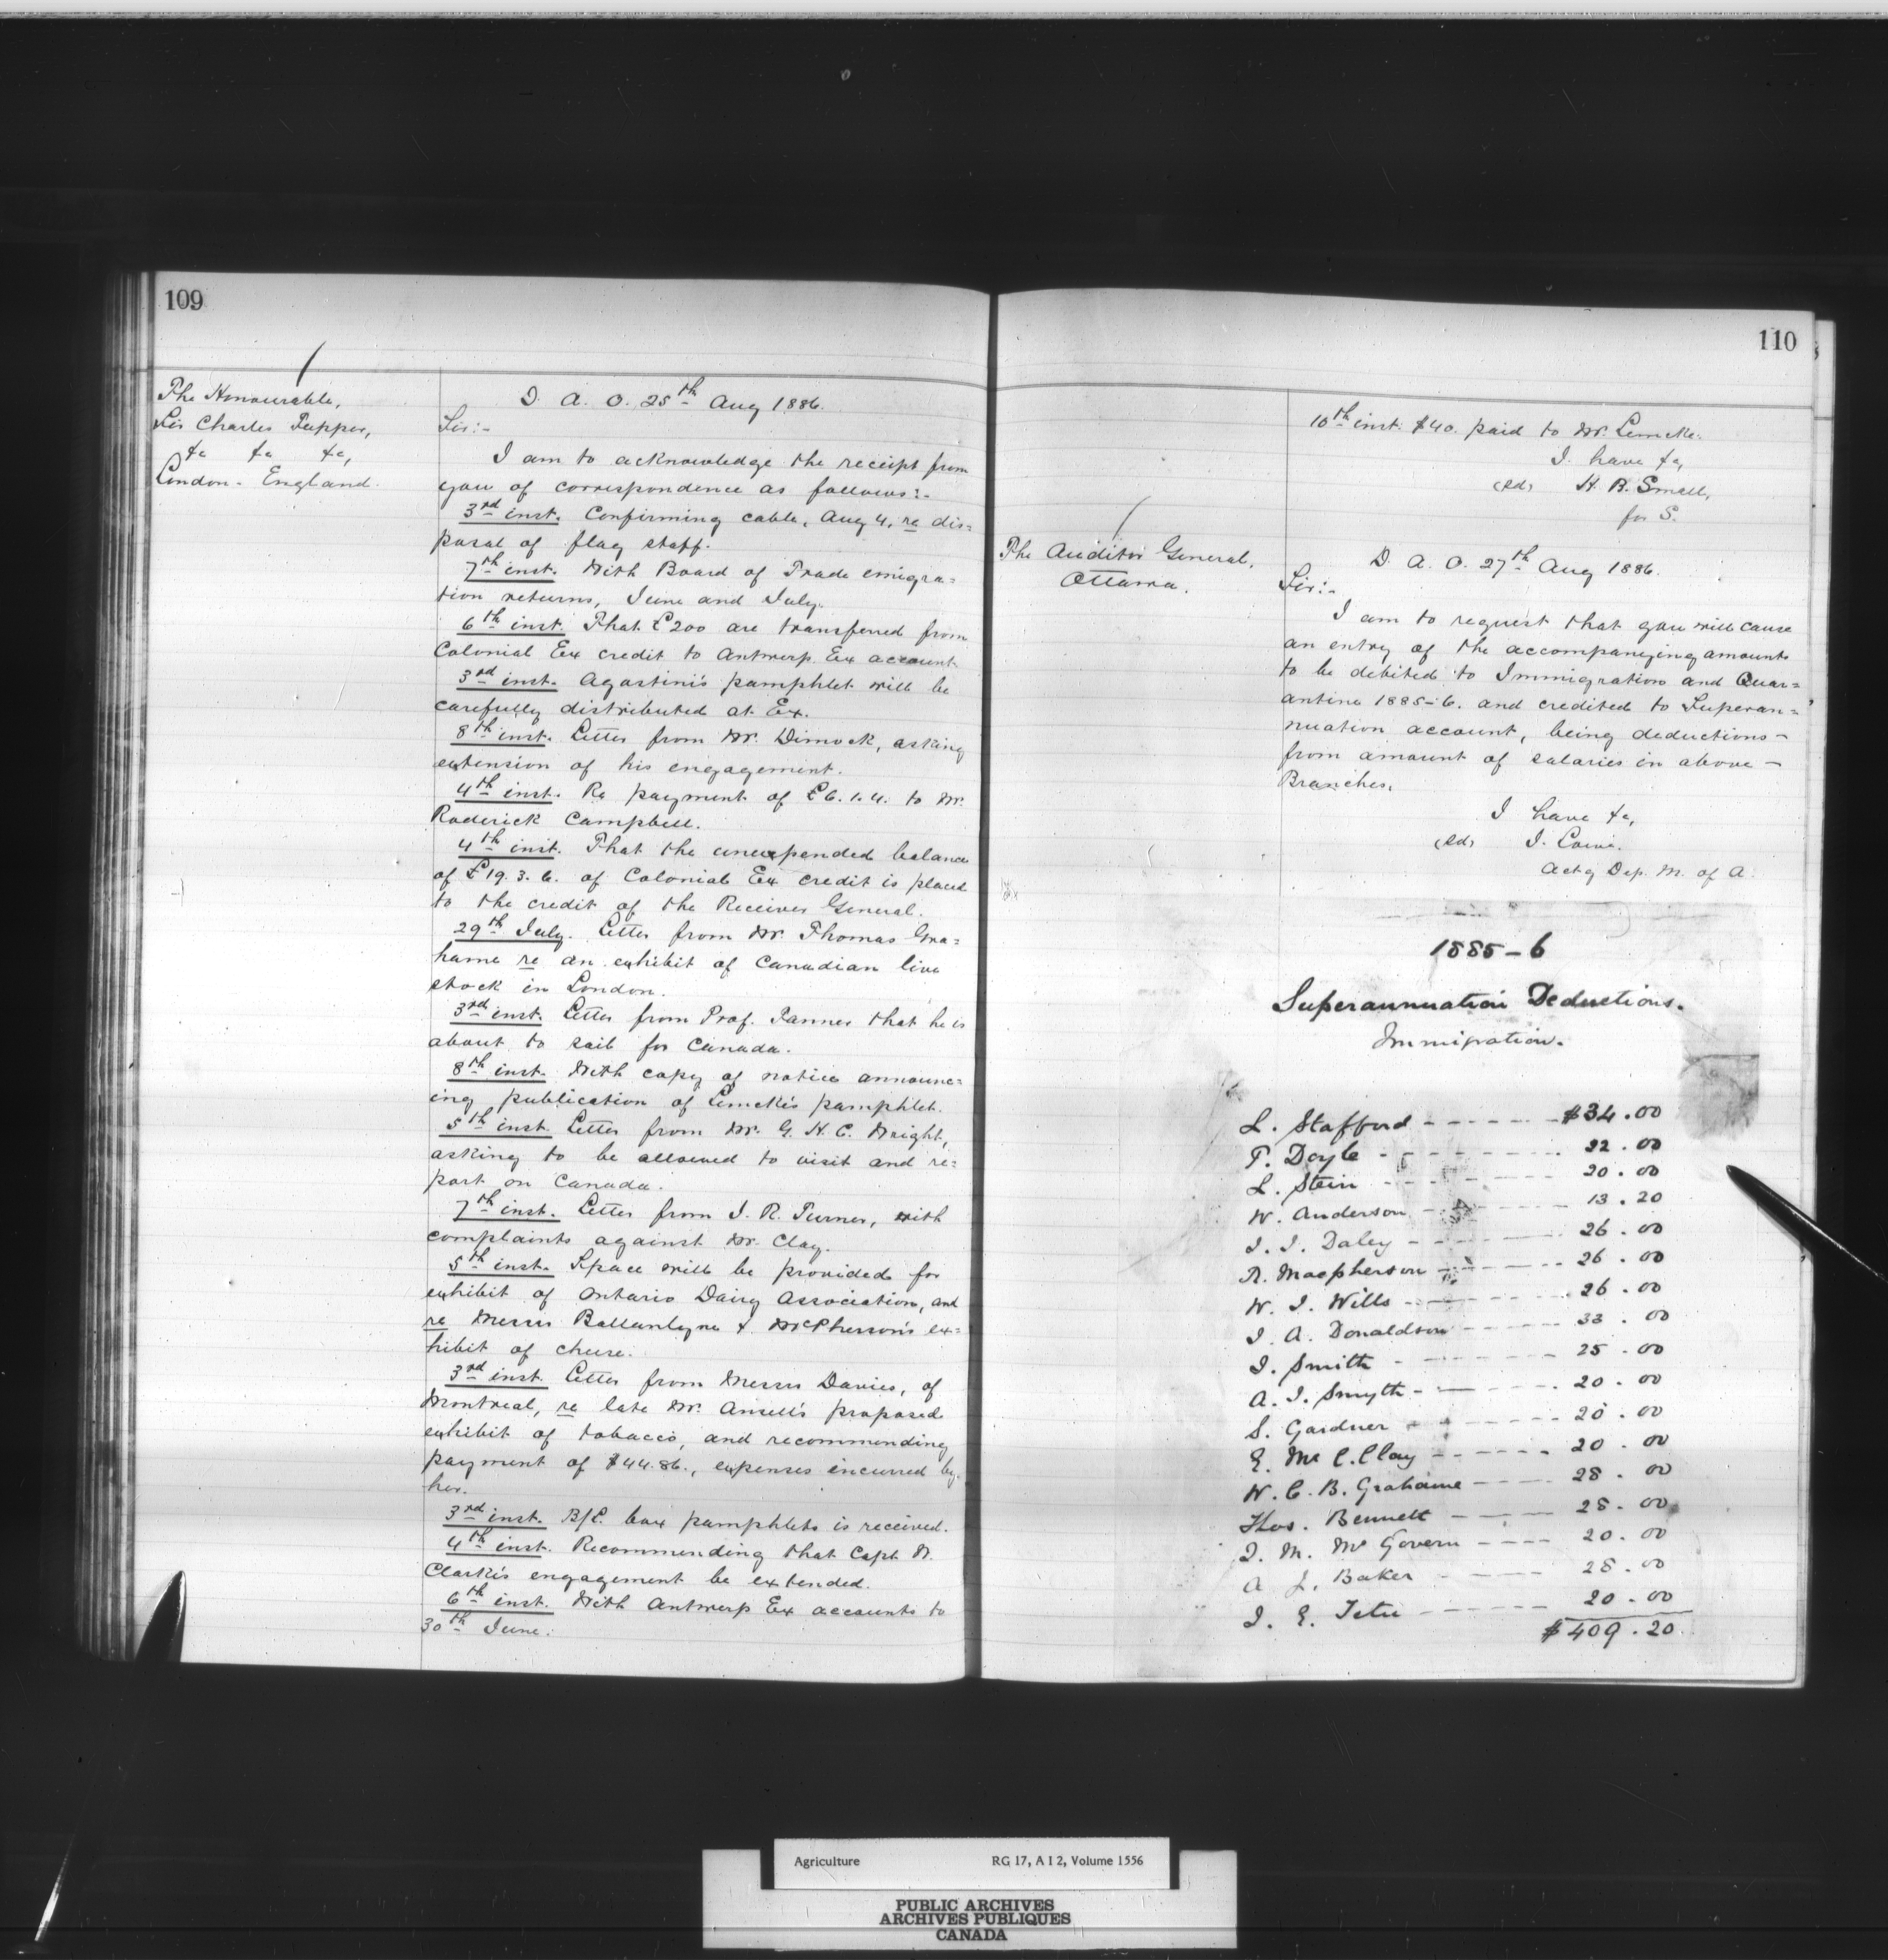 109
The Honourable,
Sir Charles Tupper,
&c &c &c,
London - England.
D. A. O. 25th Aug 1886.
Sir:-
I am to acknowledge the receipt from
you of correspondence as follows:-
3rd inst. Confirming cable, Aug 4, re dis=
posal of flag staff.
7th inst. With Board of Trade emigra=
tion returns, June and July.
6th inst. That £200 are transferred from
Colonial Ex credit to Antwerp Ex account.
3rd inst. Agostini's pamphlet will be
carefully distributed at Ex.
8th inst. Letter from Mr. Dimock, asking
extension of his engagement.
4th inst. Re payment of £6.1.4. to Mr.
Roderick Campbell.
4th inst. That the unexpended balance
of £19.3.6. of Colonial Ex credit is placed
to the credit of the Receiver General.
29th July. Letter from Mr. Thomas Gra=
hame re an exhibit of Canadian live
stock in London.
3rd inst. Letter from Prof. Tanner that he is
about to sail for Canada.
8th inst. With copy of notice announc=
ing publication of Lemcke's pamphlet.
5th inst. Letter from Mr. G. H. C. Wright,
asking to be allowed to visit and re=
port on Canada.
7th inst. Letter from J. R. Turner, with
complaints against Mr. Clay.
5th inst. Space will be provided for
exhibit of Ontario Dairy Association, and
re Messrs Ballantyne & McPherson's ex=
hibit of cheese.
3rd inst. Letter from Messrs Davies, of
Montreal, re late Mr. Ansell's proposed
exhibit of tobacco, and recommending
payment of $44.86., expenses incurred by
her.
3rd inst. B/L. box pamphlets is received.
4th inst. Recommending that Capt. W.
Clark's engagement be extended.
6th inst. With Antwerp Ex accounts to
30th June.
110
10th inst. $40. paid to Mr. Lemcke.
I have &c,
(sd) H. B. Small,
for S.
The Auditor General,
Ottawa.
D. A. O. 27th Aug 1886.
Sir:-
I am to request that you will cause
an entry of the accompanying amounts
to be debited to Immigration and Quar=
antine 1885-6. and credited to Superan=
nuation account, being deductions -
from amount of salaries in above -
Branches.
I have &c,
(sd) J. Lowe.
Actg Dep. M. of A.
1885-6
Superannuation Deductions.
Immigration.
L. Stafford - - - - - - $34.00
P. Doyle - - - - - - 22.00
L. Stein - - - - - - 20.00
W. Anderson - - - - - - 13.20
J. J. Daley - - - - - - 26.00
R. Macpherson - - - - - - 26.00
W. J. Wills - - - - - - 26.00
J. A. Donaldson - - - - - - 33.00
J. Smith - - - - - - 25.00
A. J. Smyth - - - - - - 20.00
S. Gardner - - - - - - 20.00
E. McC. Clay - - - - - - 20.00
W. C. B. Grahame - - - - 28.00
Thos. Bennett - - - - 28.00
J. M. McGovern - - - - 20.00
A J. Baker - - - - - 28.00
J. E. Tetu - - - - - - 20.00
$409.20
Agriculture RG 17, A I 2, Volume 1556
PUBLIC ARCHIVES
ARCHIVES PUBLIQUES
CANADA